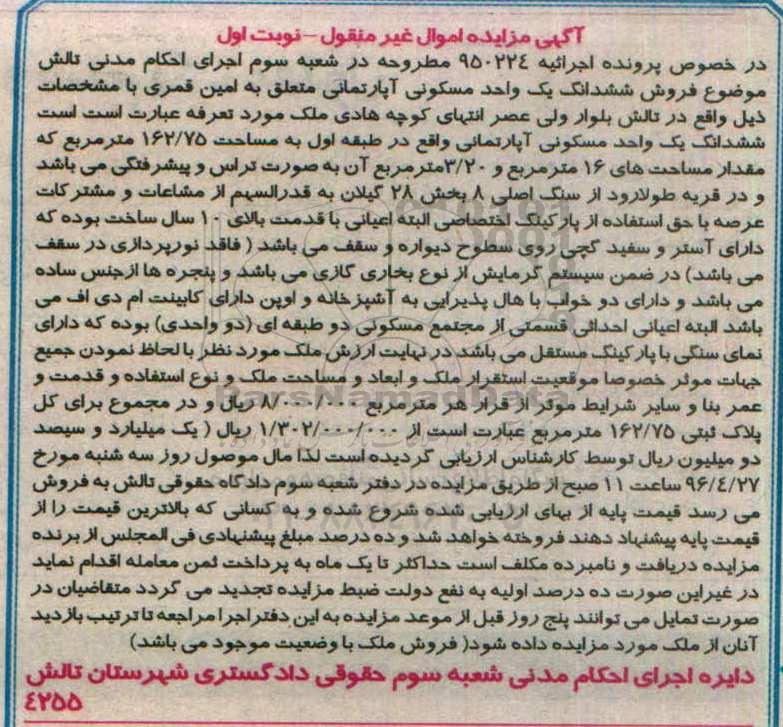 آگهی مزایده اموال غیر منقول – نوبت اول
در خصوص پرونده اجرائیه ۹۵۰۲۲٤ مطروحه در شعبه سوم اجرای احکام مدنی تالش
موضوع فروش ششدانگ یک واحد مسکونی آپارتمانی متعلق به امین قمری با مشخصات
ذیل واقع در تالش بلوار ولی عصر انتهای کوچه هادی ملک مورد تعرفه عبارت است است
ششدانگ یک واحد مسکونی آپارتمانی واقع در طبقه اول به مساحت ۱۶۲/۷۵ مترمربع که
مقدار مساحت های ۱۶ مترمربع و ۳/۲۰مترمربع آن به صورت تراس و پیشرفتگی می باشد
و در قریه طولارود از سنگ اصلی ۸ بخش ۲۸ گیلان به قدرالسهم از مشاعات و مشترکات
عرصه با حق استفاده از پارکینگ اختصاصی البته اعیانی با قدمت بالای ۱۰ سال ساخت بوده که
دارای آستر و سفید گچی روی سطوح دیواره و سقف می باشد ( فاقد نورپردازی در سقف
می باشد) در ضمن سیستم گرمایش از نوع بخاری گازی می باشد و پنجره ها ازجنس ساده
می باشد و دارای دو خواب با هال پذیرایی به آشپزخانه و اوپن دارای کابینت ام دی اف می
باشد البته اعیانی احداثی قسمتی از مجتمع مسکونی دو طبقه ای (دو واحدی) بوده که دارای
نمای سنگی با پارکینگ مستقل می باشد در نهایت ارزش ملک مورد نظر با لحاظ نمودن جمیع
جهات موثر خصوصا موقعیت استقرار ملک و ابعاد و مساحت ملک و نوع استفاده و قدمت و
عمر بنا و سایر شرایط موثر از قرار هر مترمربع ۸/۰۰۰/۰۰۰ ریال و در مجموع برای کل
پلاک ثبتی ۱۶۲/۷۵ مترمربع عبارت است از ۱/۳۰۲/۰۰۰/۰۰۰ ریال ( یک میلیارد و سیصد
دو میلیون ریال توسط کارشناس ارزیابی گردیده است لذا مال موصول روز سه شنبه مورخ
۹۶/٤/۲۷ ساعت ۱۱ صبح از طریق مزایده در دفتر شعبه سوم دادگاه حقوقی تالش به فروش
می رسد قیمت پایه از بهای ارزیابی شده شروع شده و به کسانی که بالاترین قیمت را از
قیمت پایه پیشنهاد دهند فروخته خواهد شد و ده درصد مبلغ پیشنهادی فی المجلس از برنده
مزایده دریافت و نامبرده مکلف است حداکثر تا یک ماه به پرداخت ثمن معامله اقدام نماید
در غیراین صورت ده درصد اولیه به نفع دولت ضبط مزایده تجدید می گردد متقاضیان در
صورت تمایل می توانند پنج روز قبل از موعد مزایده به این دفتر اجرا مراجعه تا ترتیب بازدید
آنان از ملک مورد مزایده داده شود( فروش ملک با وضعیت موجود می باشد)
دایره اجرای احکام مدنی شعبه سوم حقوقی دادگستری شهرستان تالش
٤۲۵۵
ParsNamadData